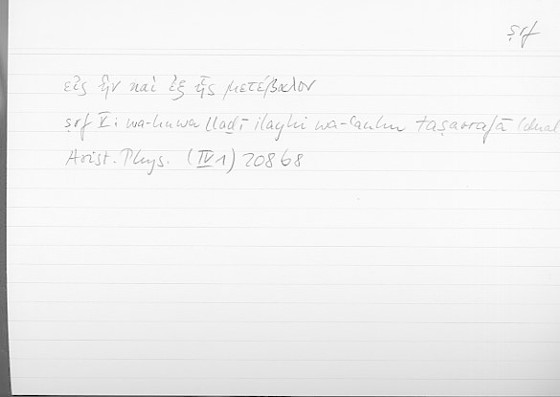 ṣrf
εἰς ἣν καὶ ἐξ ἧς μετέβαλον
ṣrf V: wa-huwa lladī ilayhi wa-ʿanhu taṣarrafā (dual
Arist. Phys. (IV 1) 208 b 8